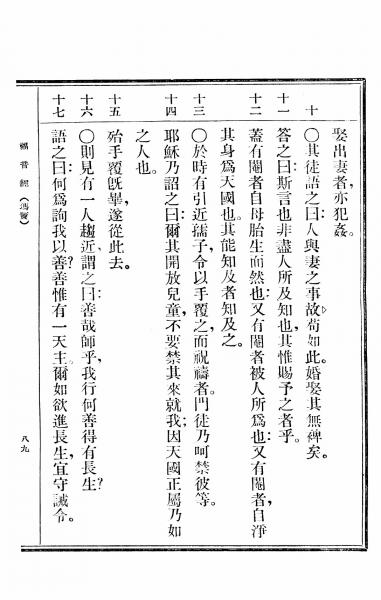 娶出妻者、亦犯姦。
十 〇其徒語之曰:人與妻之事故、苟如此、婚娶其無裨矣。
十一 答之曰:斯言也非盡人所及知也、其惟賜予之者乎。
十二 蓋有閹者自母胎生而然也:又有閹者被人所爲也:又有閹者、自淨
其身爲天國也。其能知及者知及之。
十三 〇於時有引近孺子、令以手覆之而祝禱者。門徒乃呵禁彼等。
十四 耶穌乃詔之曰:爾其開放兒童、不要禁其來就我;因天國正屬乃如
之人也。
十五 殆手覆旣畢、遂從此去。
十六 〇則見有一人趨近、謂之曰:善哉師乎、我行何善得有長生?
十七 語之曰:何爲詢我以善?善惟有一天主。爾如欲進長生、宜守誡令。
福音經(瑪竇)
八九